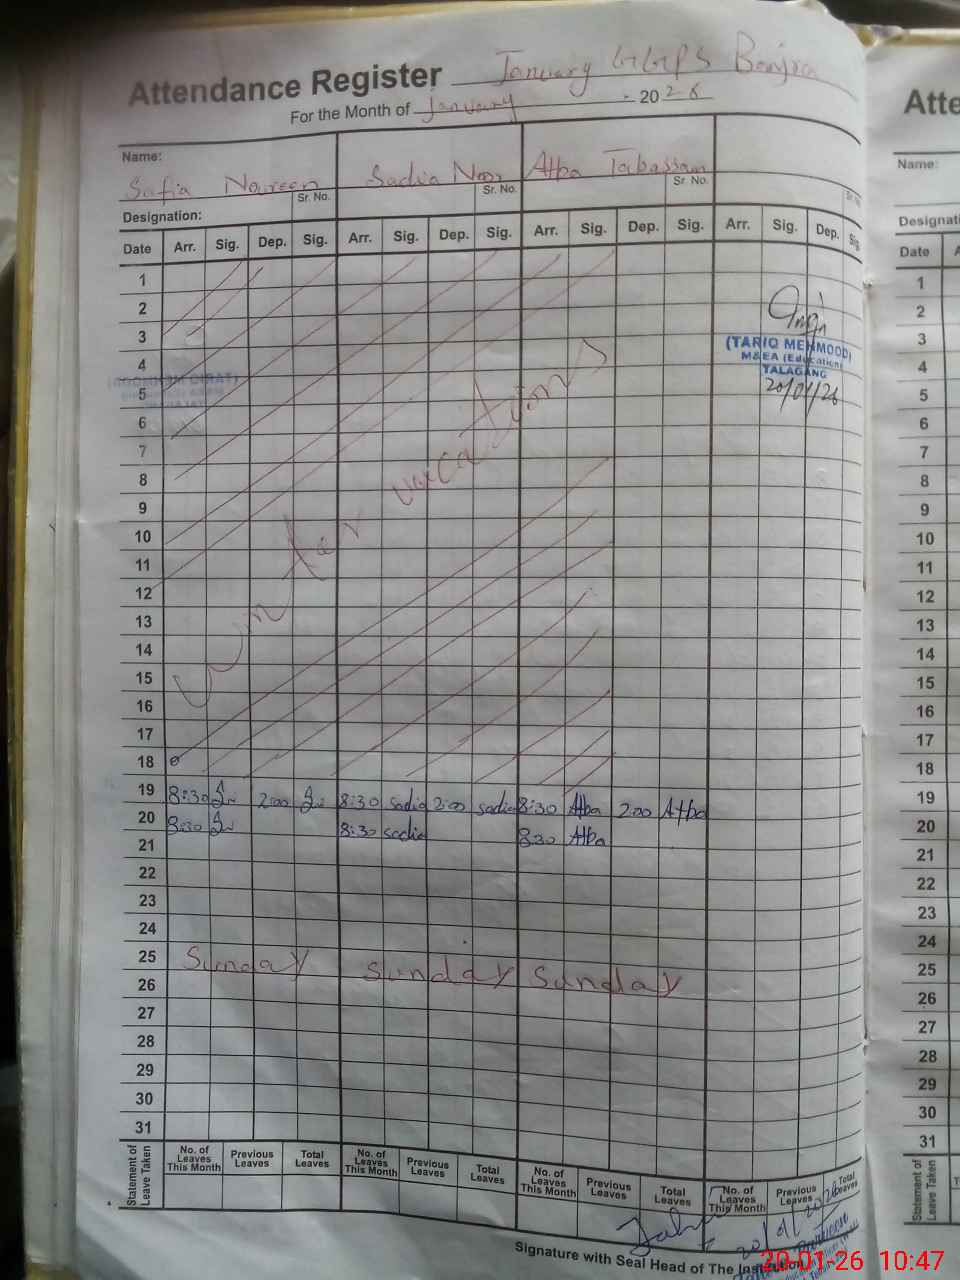 Attendance Register January GGPS Banjra
For the Month of January - 2026
Name:
Safia Noreen Sadia Noor Atba Tabassam
Sr. No. Sr. No. Sr. No. Sr. No.
Designation:
Date Arr. Sig. Dep. Sig. Arr. Sig. Dep. Sig. Arr. Sig. Dep. Sig. Arr. Sig. Dep. Sig.
1
2
3
(TARIQ MEHMOOD)
M&EA (Education)
4
TALAGANG
20/01/26
5
6
7
8
9
10
11
12
13
14
15
winter vacations
16
17
18
19 8:30 2:00 8:30 sadia 2:00 sadia 8:30 Atba 2:00 Atba
20 8:30 8:30 sadia 8:30 Atba
21
22
23
24
25 Sunday Sunday Sunday
26
27
28
29
30
31
Statement of Leave Taken
No. of Leaves This Month Previous Leaves Total Leaves No. of Leaves This Month Previous Leaves Total Leaves No. of Leaves This Month Previous Leaves Total Leaves No. of Leaves This Month Previous Leaves Total Leaves
20/01/2026
Signature with Seal Head of The Institution
20-01-26 10:47
Atte
Name:
Designati
Date A
1
2
3
4
5
6
7
8
9
10
11
12
13
14
15
16
17
18
19
20
21
22
23
24
25
26
27
28
29
30
31
Statement of Leave Taken